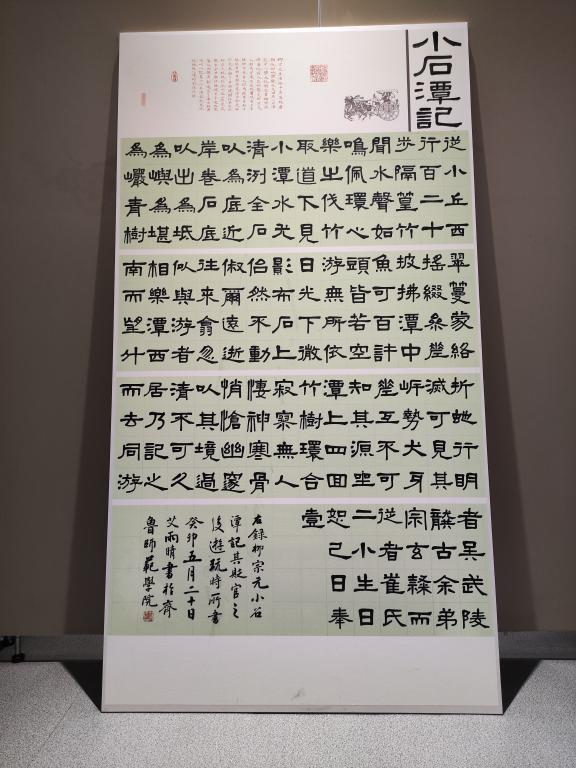 小石潭記
從小丘西
行百二十
步隔篁竹
聞水聲如
鳴佩環心
樂之伐竹
取道下見
小潭水尤
清洌全石
以為底近
岸卷石底
以出為坻
為嶼為堪
為巖青樹
翠蔓蒙絡
搖綴參差
披拂潭中
魚可百許
頭皆若空
游無所依
日光下澈
影布石上
佁然不動
俶爾遠逝
往來翕忽
似與游者
相樂潭西
南而望斗
折蛇行明
滅可見其
岸勢犬牙
差互不可
知其源坐
潭上四面
竹樹環合
寂寥無人
悽神寒骨
悄愴幽邃
以其境過
清不可久
居乃記之
而去同游
者吳武陵
龔古余弟
宗玄隸而
從者崔氏
二小生曰
恕己曰奉
壹
左錄柳宗元小石
潭記其貶官之
後遊玩時所書
癸卯五月二十日
艾雨晴書於齊
魯師範學院